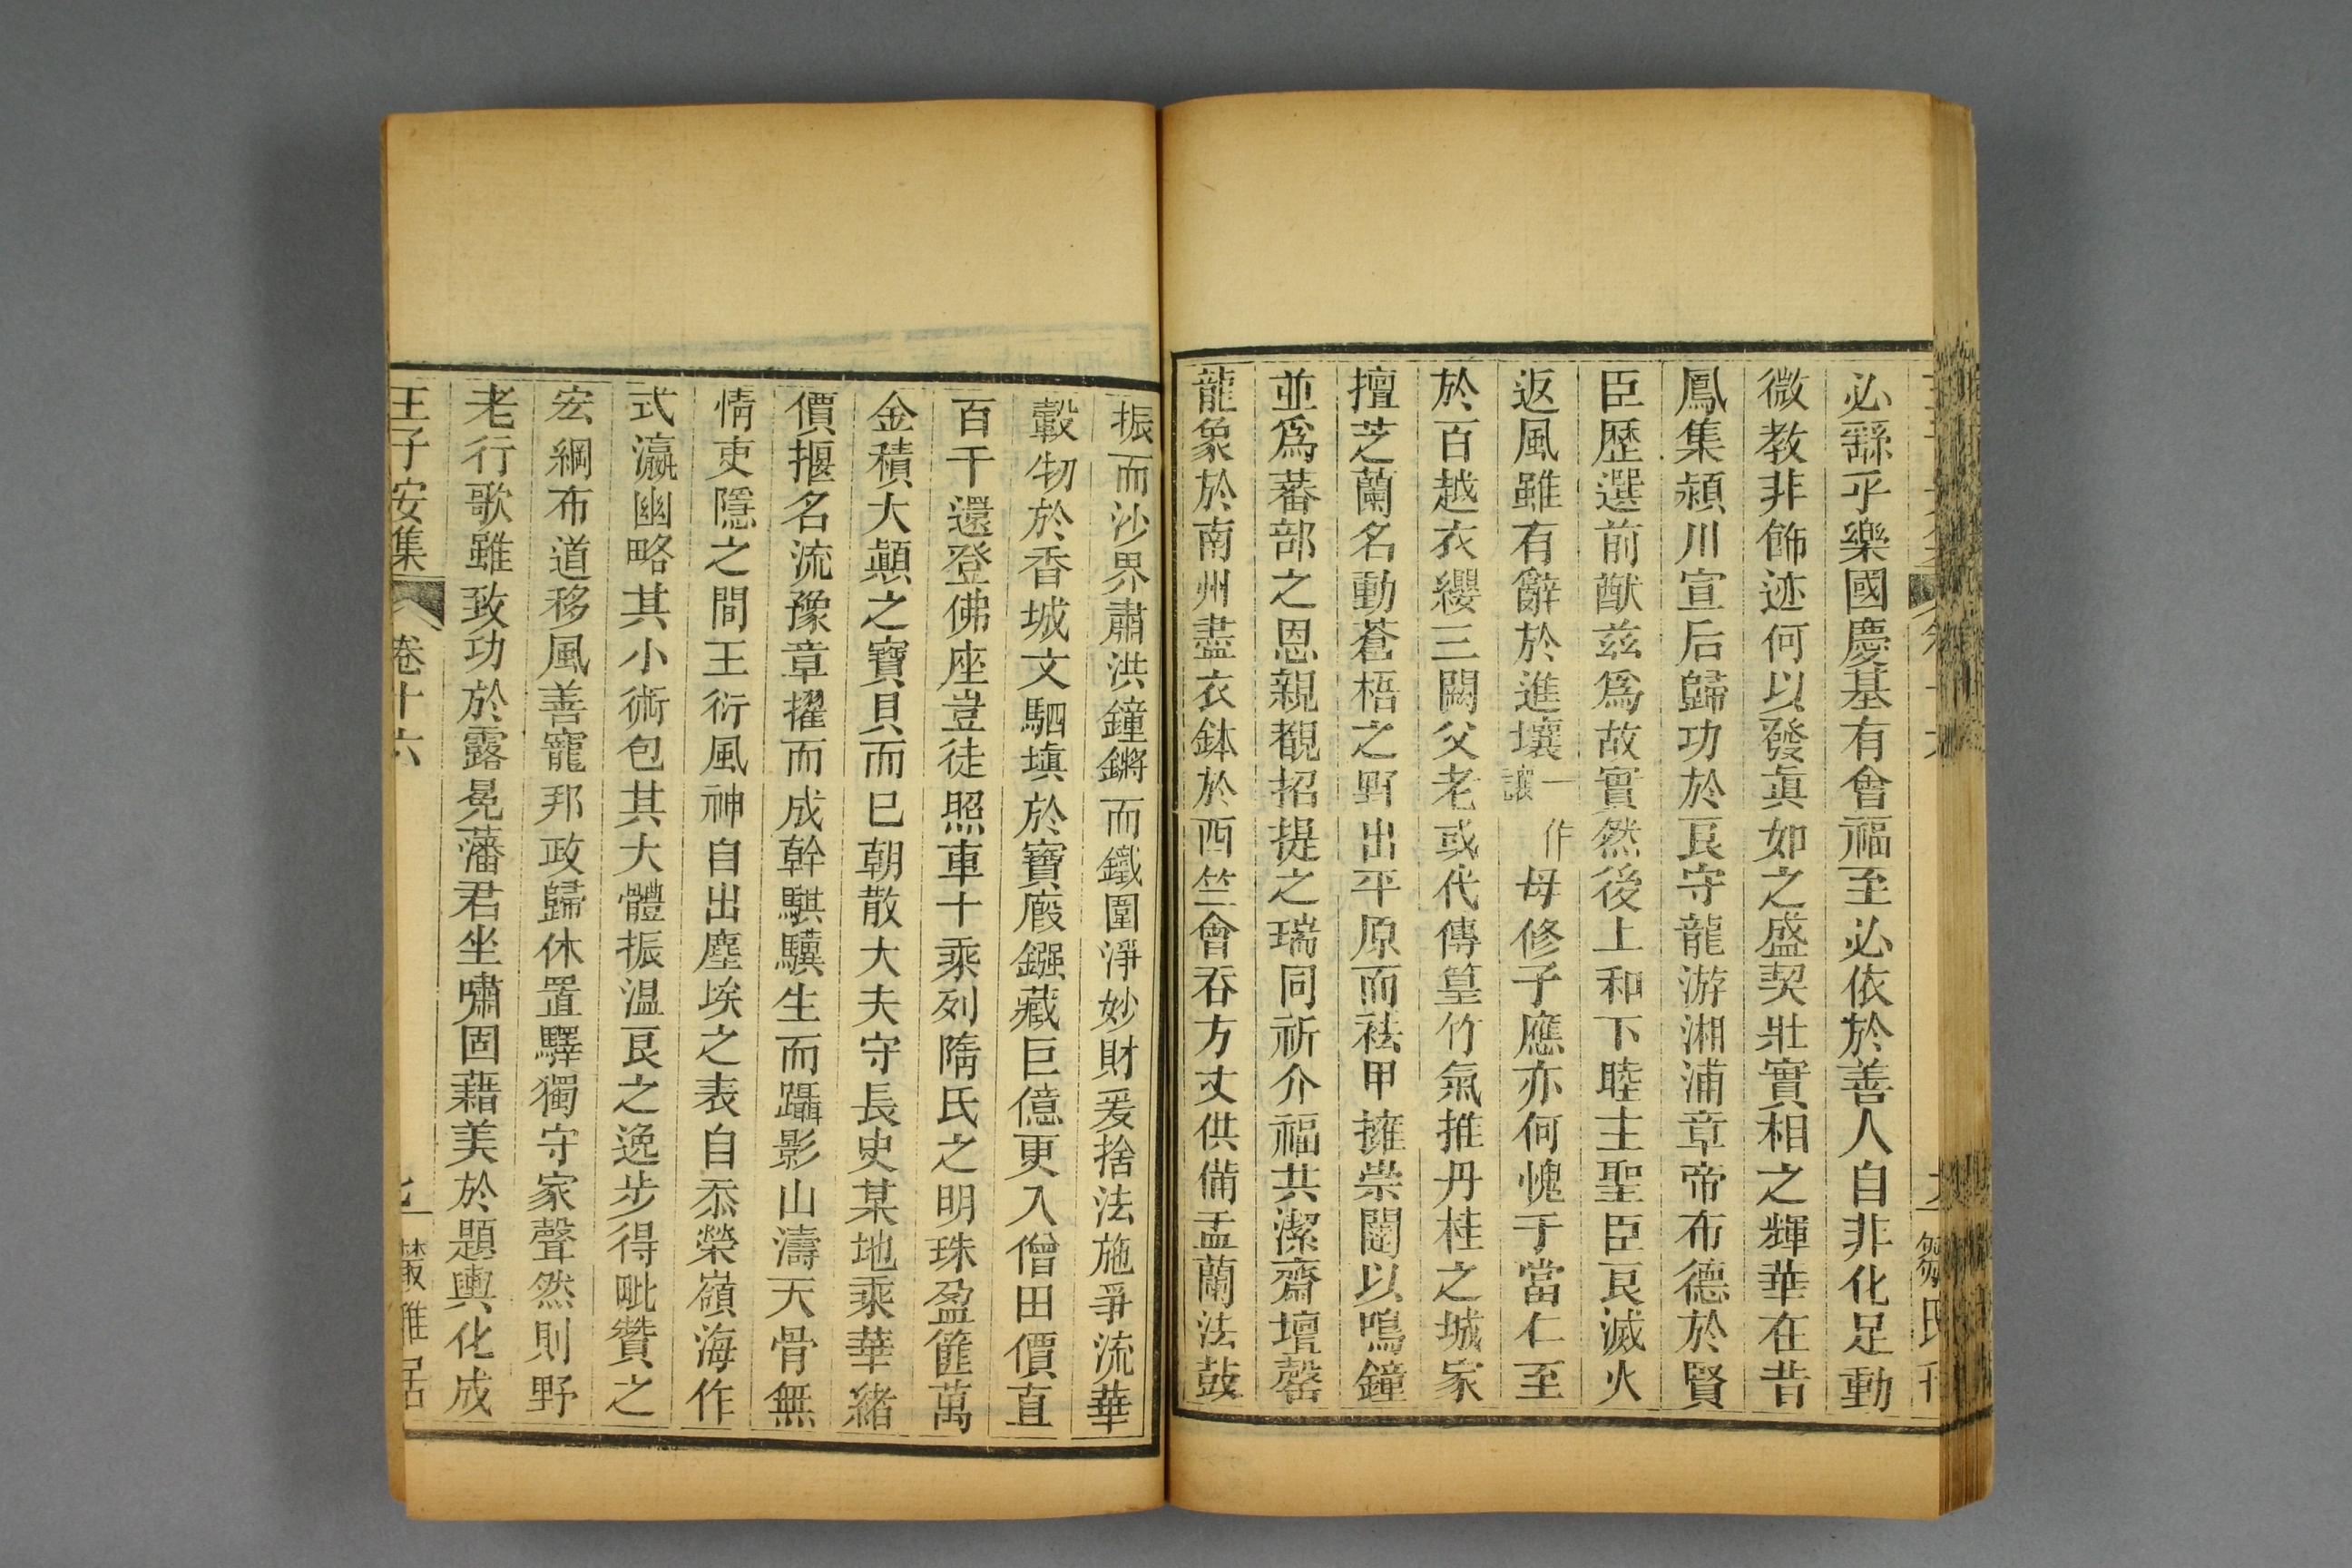 必繇乎樂國慶基有會福至必依於善人自非化足動
微教非飾迹何以發眞如之盛契壯實相之輝華在昔
鳳集潁川宣后歸功於良守龍游湘浦章帝布德於賢
臣歷選前猷茲爲故實然後上和下睦主聖臣良滅火
返風雖有辭於進壤一作讓毋修子應亦何愧于當仁至
於百越衣纓三闕父老或代傳篁竹氣推丹桂之城家
擅芝蘭名動蒼梧之野出平原而袪甲擁崇闥以鳴鐘
並爲蕃部之恩親覩招提之瑞同祈介福共潔齋壇罄
龍象於南州盡衣鉢於西竺會吞方丈供備盂蘭法鼓
振而沙界肅洪鐘鏘而鐵圍淨妙財爰捨法施爭流華
轂牣於香城文駟塡於寶廄鏹藏巨億更入僧田價直
百千還登佛座豈徒照車十乘列隋氏之明珠盈篚萬
金積大顚之寶貝而已朝散大夫守長史某地乘華緒
價揠名流豫章擢而成幹騏驥生而躡影山濤天骨無
情吏隱之間王衍風神自出塵埃之表自忝榮嶺海作
式瀛幽略其小術包其大體振温良之逸步得毗贊之
宏綱布道移風善寵邦政歸休置驛獨守家聲然則野
老行歌雖致功於露冕藩君坐嘯固藉美於題輿化成
王子安集 卷十六 叢雅居